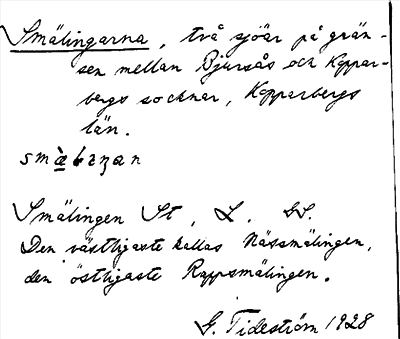 Smälingarna, två sjöar på grän-
sen mellan Bjursås och Koppar-
bergs socknar, Kopparbergs
län.
Smälingen St, L. GS.
Den västligaste kallas Nässmälingen,
den östligaste Rappsmälingen.
G. Tideström 1928